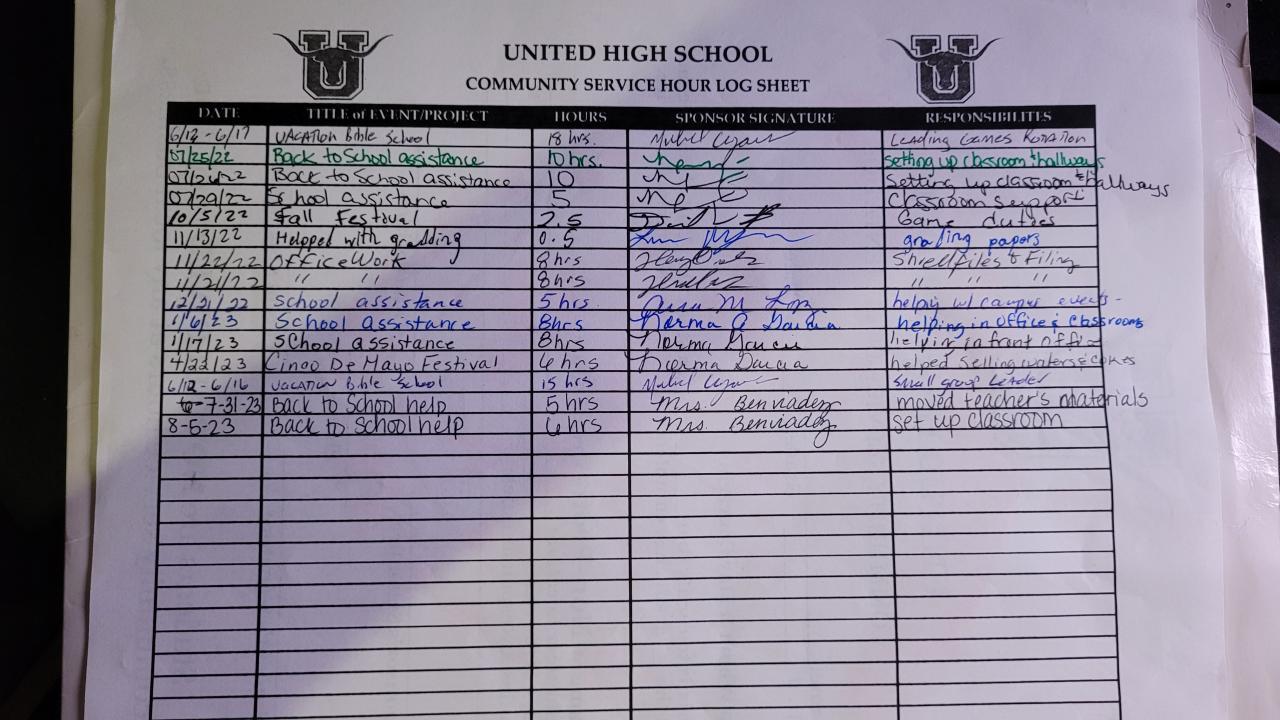 UNITED HIGH SCHOOL
COMMUNITY SERVICE HOUR LOG SHEET
DATE TITLE of EVENT/PROJECT HOURS SPONSOR SIGNATURE RESPONSIBILITIES
6/12 - 6/17 VACATION Bible School 18 hrs. Leading Games Rotation
07/25/22 Back to School assistance 10 hrs. setting up classroom & hallways
Back to School assistance 10 Setting up classroom & hallways
School assistance 5 Classroom support
10/5/22 Fall Festival 2.5 Game duties
11/13/22 Helpped with gradding 0.5 grading papers
11/22/22 Office Work 8hrs & Filing
11/21/22 " " 8hrs " "
12/21/22 School assistance 5 hrs. helping w/ campus events-
1/6/23 School assistance 8hrs Norma Garcia helping in office & classrooms
1/17/23 School assistance 8hrs Norma Garcia helping in front office
4/22/23 Cinco De Mayo Festival 6 hrs Norma Garcia helped selling waters & cokes
6/12 - 6/16 VACATION Bible School 15 hrs Small group Leader
7-31-23 Back to School help 5 hrs Mrs. Benviadez moved teacher's materials
8-5-23 Back to School help 6 hrs Mrs. Benviadez set up classroom